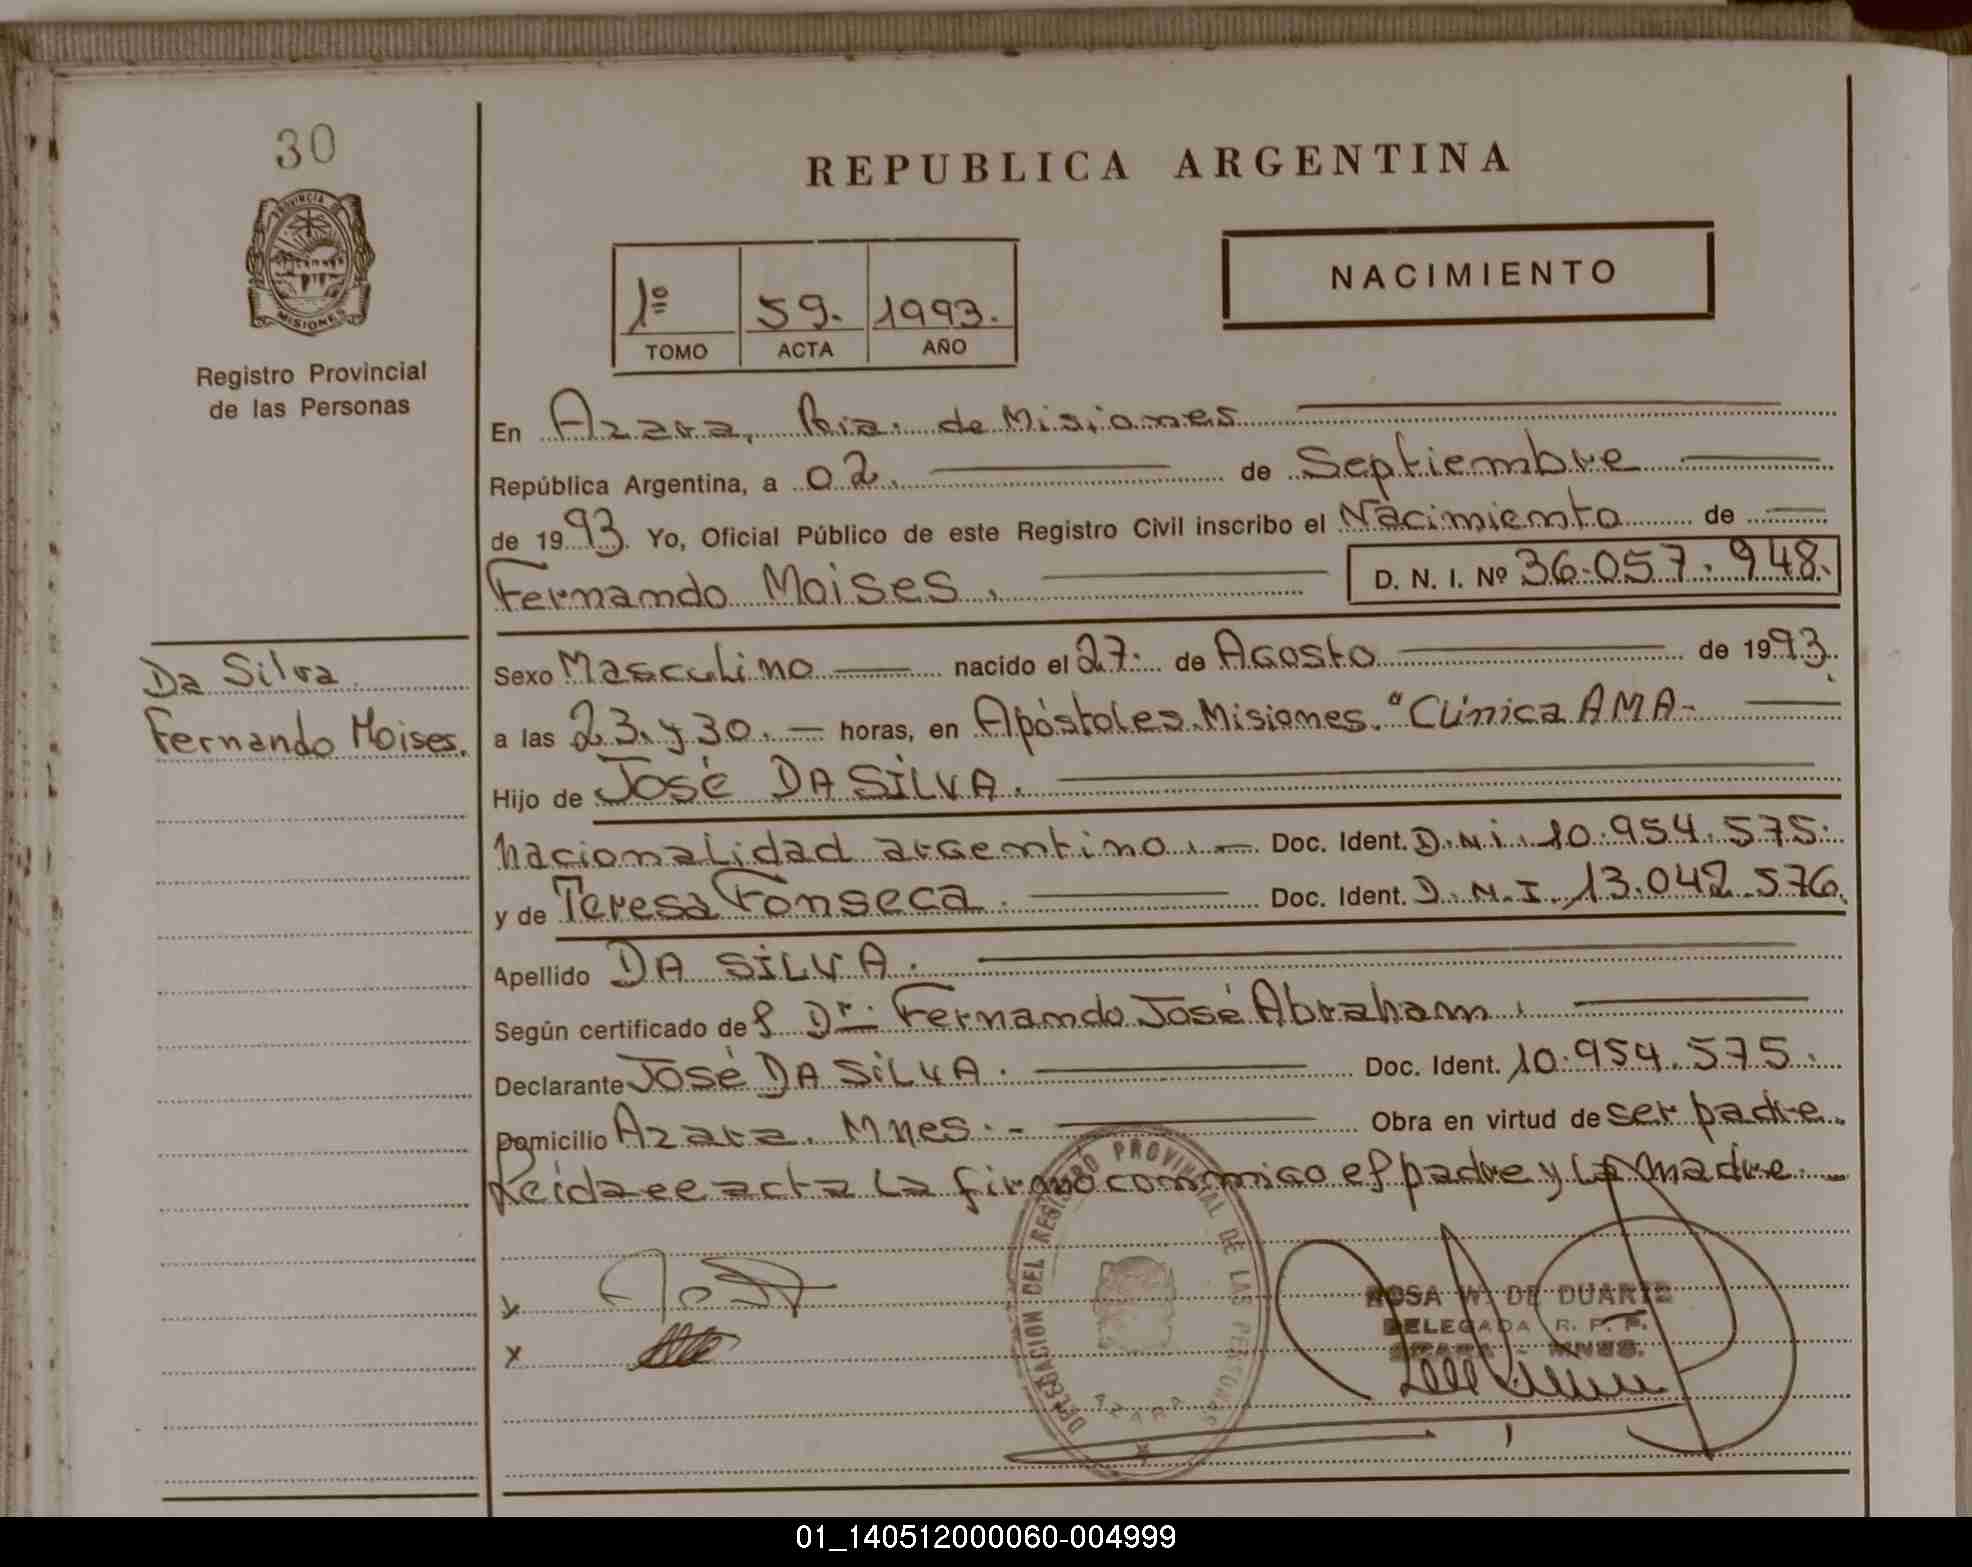 30
PROVINCIA DE
MISIONES
Registro Provincial
de las Personas
REPUBLICA ARGENTINA
NACIMIENTO
1º 59. 1993.
TOMO ACTA AÑO
En Azara, Pcia. de Misiones
República Argentina, a 02. de Septiembre
de 1993. Yo, Oficial Público de este Registro Civil inscribo el Nacimiento de
Fernando Moises. D. N. I. Nº 36.057.948.
Da Silva
Fernando Moises.
Sexo Masculino nacido el 27. de Agosto de 1993.
a las 23. y 30. horas, en Apóstoles. Misiones. "Clínica AMA-
Hijo de José DA SILVA.
nacionalidad argentino. Doc. Ident. D.N.i. 10.954.575.
y de Teresa Fonseca. Doc. Ident. D.N.I. 13.042.576.
Apellido DA SILVA.
Según certificado del Dr. Fernando José Abraham.
Declarante José DA SILVA. Doc. Ident. 10.954.575.
Domicilio Azara. Mnes.- Obra en virtud de ser padre.
Leida ee acta la firmó conmigo el padre y la madre.
x
x
DELEGACION DEL REGISTRO PROVINCIAL DE LAS PERSONAS
AZARA
ROSA W. DE DUARTE
DELEGADA R. P. P.
AZARA - MNES.
01_140512000060-004999